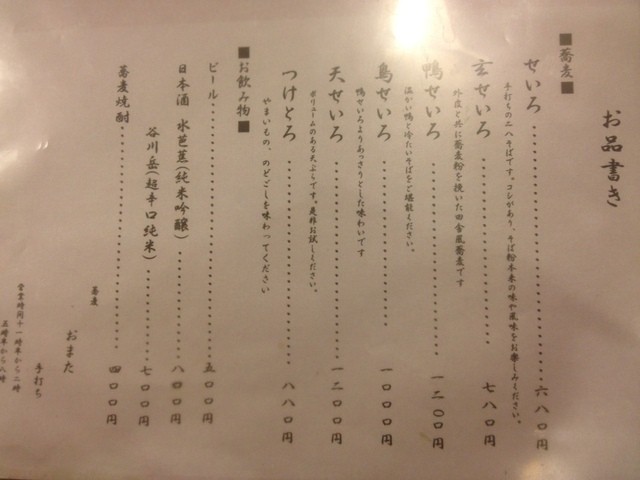 お品書き
■蕎麦■
せいろ・・・・・・・・・・・・・・・・・・・・・六八〇円
手打ちの二八そばです。コシがあり、そば粉本来の味や風味をお楽しみください。
玄せいろ・・・・・・・・・・・・・・・・・・七八〇円
外皮と共に蕎麦粉を挽いた田舎風蕎麦です
鴨せいろ・・・・・・・・・・・・・・・・・・一二〇〇円
温かい鴨と冷たいそばをご堪能ください。
鳥せいろ・・・・・・・・・・・・・・・・・・一〇〇〇円
鴨せいろよりあっさりとした味わいです
天せいろ・・・・・・・・・・・・・・・・・・一二〇〇円
ボリュームのある天ぷらです。是非お試しください。
つけとろ・・・・・・・・・・・・・・・・・・八八〇円
やまいもの、のどごしを味わってください
■お飲み物■
ビール・・・・・・・・・・・・・・・・・・・・・五〇〇円
日本酒 水芭蕉(純米吟醸)・・・・・・・・・八〇〇円
谷川岳(超辛口純米)・・・・・・・・・七〇〇円
蕎麦焼酎・・・・・・・・・・・・・・・・・・・・・四〇〇円
蕎麦
おまた
手打ち
営業時間十一時半から二時
五時半から八時